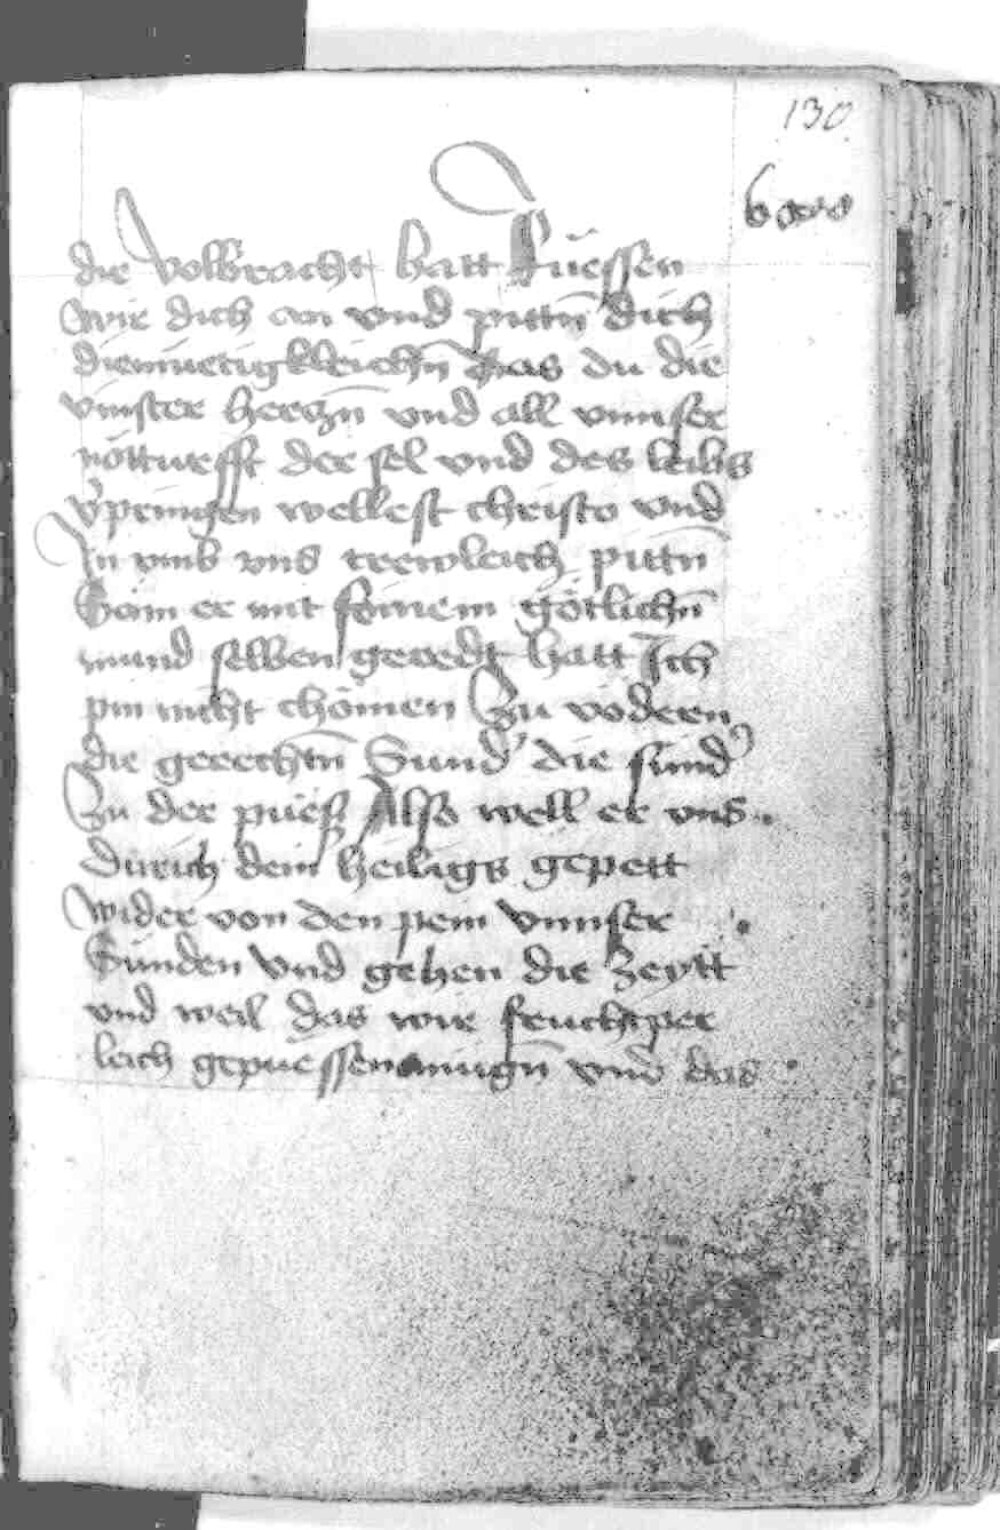 130
die volbracht hatt Rueffen
wir dich an vnd pittn̄ dich
diemuetigkleichn̄ das du die
vinster herczn̄ vnd all vnnser
nötturfft der sel vnd des leibs
v̓pringen wellest christo vnd
In vmb vns trewleich pittn̄
Sam er mit seinem götlichn̄
mund selben geredt hatt Ich
pin nicht chömen Zu vödern
die gerechtn̄ Sund̓ die sund̓
Zu der puess Also well er vns
durich dein heiligs gepett
wider von den pein vnnser
Sünden vnd geben die Zeytt
vnd weil das wir fruchtper
leich gepuessen mugn̄ vnd das